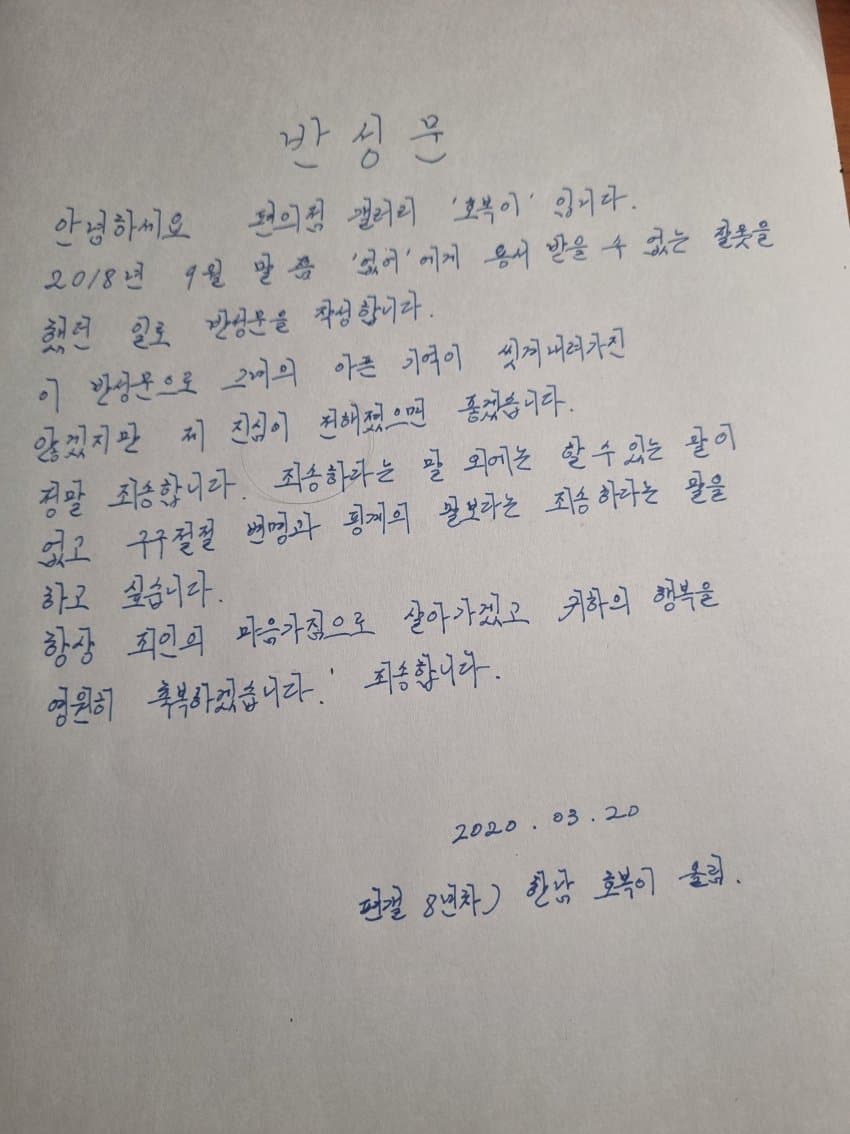 반성문
안녕하세요 편의점 갤러리 '호복이' 입니다.
2018년 9월 말 쯤 '없어'에게 용서 받을 수 없는 잘못을
했던 일로 반성문을 작성합니다.
이 반성문으로 그녀의 아픈 기억이 씻겨내려가진
않겠지만 제 진심이 전해졌으면 좋겠습니다.
정말 죄송합니다. 죄송하다는 말 외에는 할 수 있는 말이
없고 구구절절 변명과 핑계의 말보다는 죄송하다는 말을
하고 싶습니다.
항상 죄인의 마음가짐으로 살아가겠고 귀하의 행복을
영원히 축복하겠습니다. 죄송합니다.
2020.03.20
편갤 8년차) 한남 호복이 올림.